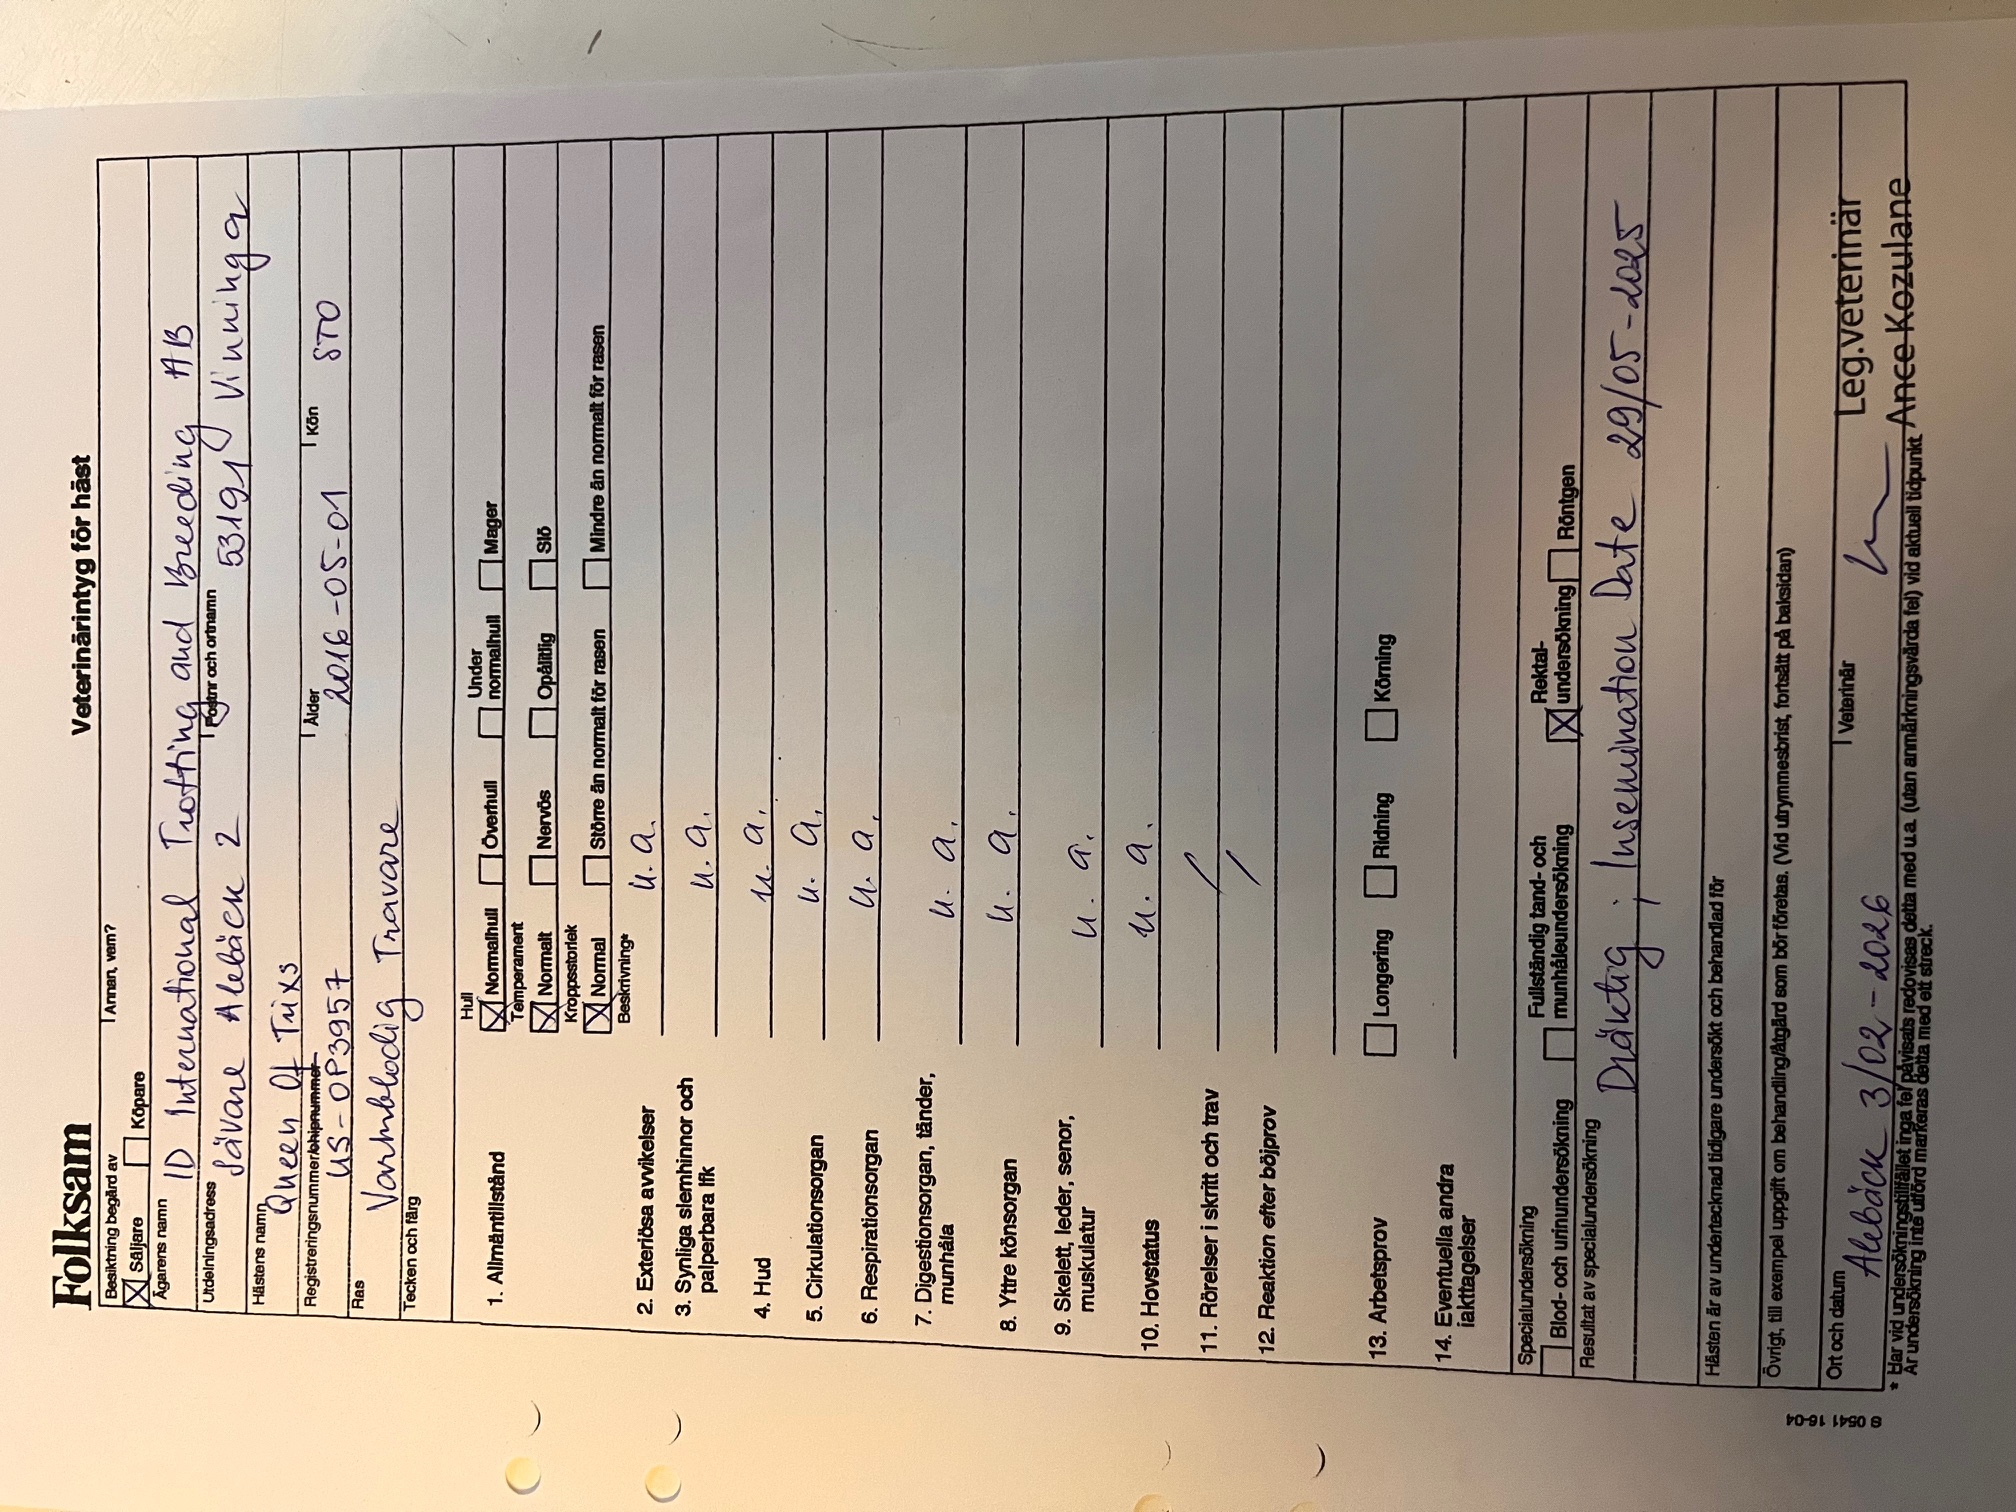 Folksam
Veterinärintyg för häst
Besiktning begärd av
Säljare Köpare Annan, vem?
Ägarens namn
ID International Trotting and Breeding AB
Utdelningsadress Postnr och ortnamn
Sävare Alebäck 2 53191 Vinninga
Hästens namn
Queen Of Trixs
Registreringsnummer/chipnummer Ålder Kön
US-OP3957 2016-05-01 STO
Ras
Varmblodig Travare
Tecken och färg
1. Allmäntillstånd
Hull
Normalhull Överhull Under normalhull Mager
Temperament
Normalt Nervös Opålitlig Slö
Kroppsstorlek
Normal Större än normalt för rasen Mindre än normalt för rasen
Beskrivning*
2. Exteriösa avvikelser u.a.
3. Synliga slemhinnor och
palperbara lfk u.a.
4. Hud u.a.
5. Cirkulationsorgan u.a.
6. Respirationsorgan u.a.
7. Digestionsorgan, tänder,
munhåla u.a.
8. Yttre könsorgan u.a.
9. Skelett, leder, senor,
muskulatur u.a.
10. Hovstatus u.a.
11. Rörelser i skritt och trav /
12. Reaktion efter böjprov /
13. Arbetsprov Longering Ridning Körning
14. Eventuella andra
iakttagelser
Specialundersökning
Blod- och urinundersökning Fullständig tand- och munhåleundersökning Rektal-undersökning Röntgen
Resultat av specialundersökning
Dräktig ; Insemination Date 29/05-2025
Hästen är av undertecknad tidigare undersökt och behandlad för
Övrigt, till exempel uppgift om behandling/åtgärd som bör företas. (Vid utrymmesbrist, fortsätt på baksidan)
Ort och datum Veterinär
Alebäck 3/02-2026 Leg.veterinär
Ance Kozulane
* Har vid undersökningstillfället inga fel påvisats redovisas detta med u.a. (utan anmärkningsvärda fel) vid aktuell tidpunkt
Är undersökning inte utförd markeras detta med ett streck.
S 0541 16-04